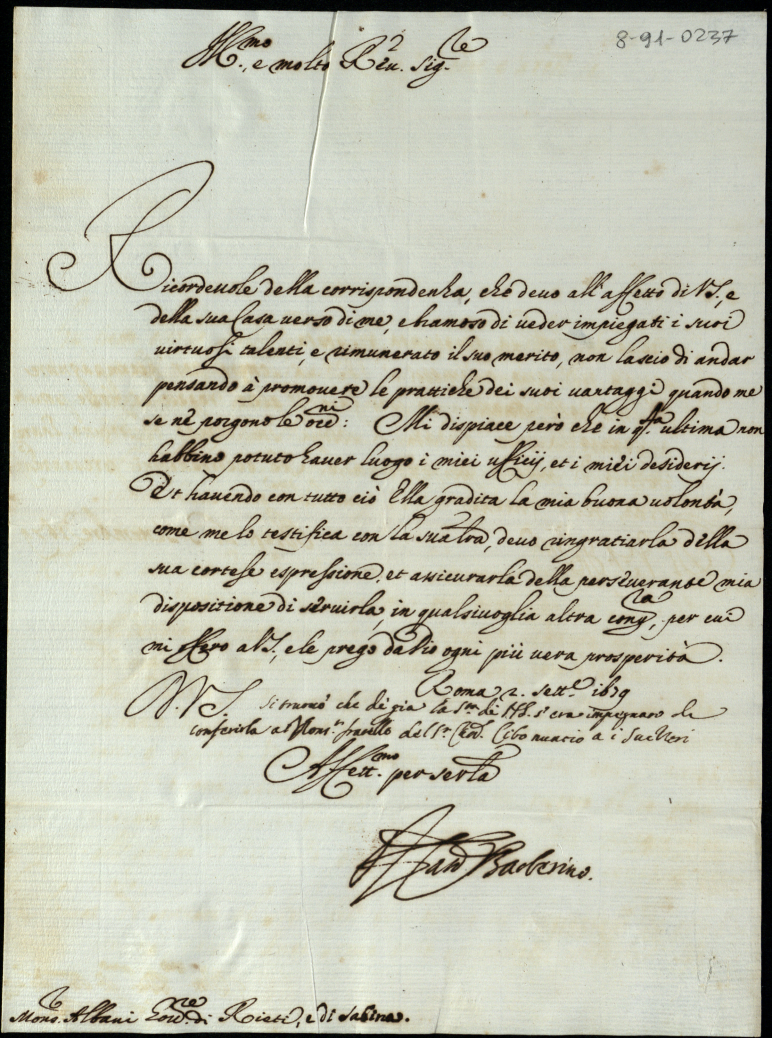 8-91-0237
Ill.mo, e molto Reu. Sig.re
Ricordeuole della corrispondenza, che deuo all'affetto di V.S., e
della sua Casa verso di me, e bramoso di ueder impiegati i suoi
virtuosi talenti, e rimunerato il suo merito, non lascio di andar
pensando à promouere le prattiche dei suoi vantaggi quando me
se nè porgono le occ.ni: Mi dispiace però che in q.sta ultima non
habbino potuto hauer luogo i miei ufficij, et i miei desiderij.
Et hauendo con tutto ciò Ella gradita la mia buona uolontà,
come me lo testifica con la sua lra, deuo ringratiarla della
sua cortese espressione, et assicurarla della perseuerante mia
dispositione di seruirla, in qualsiuoglia altra cong.ra, per cui
mi offero a V.S., e le prego da Dio ogni più vera prosperità.
Roma 2. Sett.e 1679
D. V.S. Si trouò che di già la S.tà di N.S. s'era impegnato de
conferirla a Mons.r fratello del S.r Card. Cibo nuncio a i Sueizeri
Affett.mo per seruirla
Card Barberino.
Mons. Albani Gou.re di Rieti, e di Sabina.